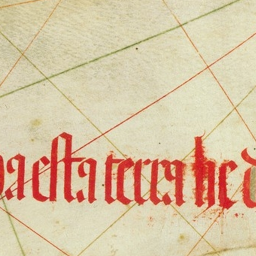 a esta terra he d